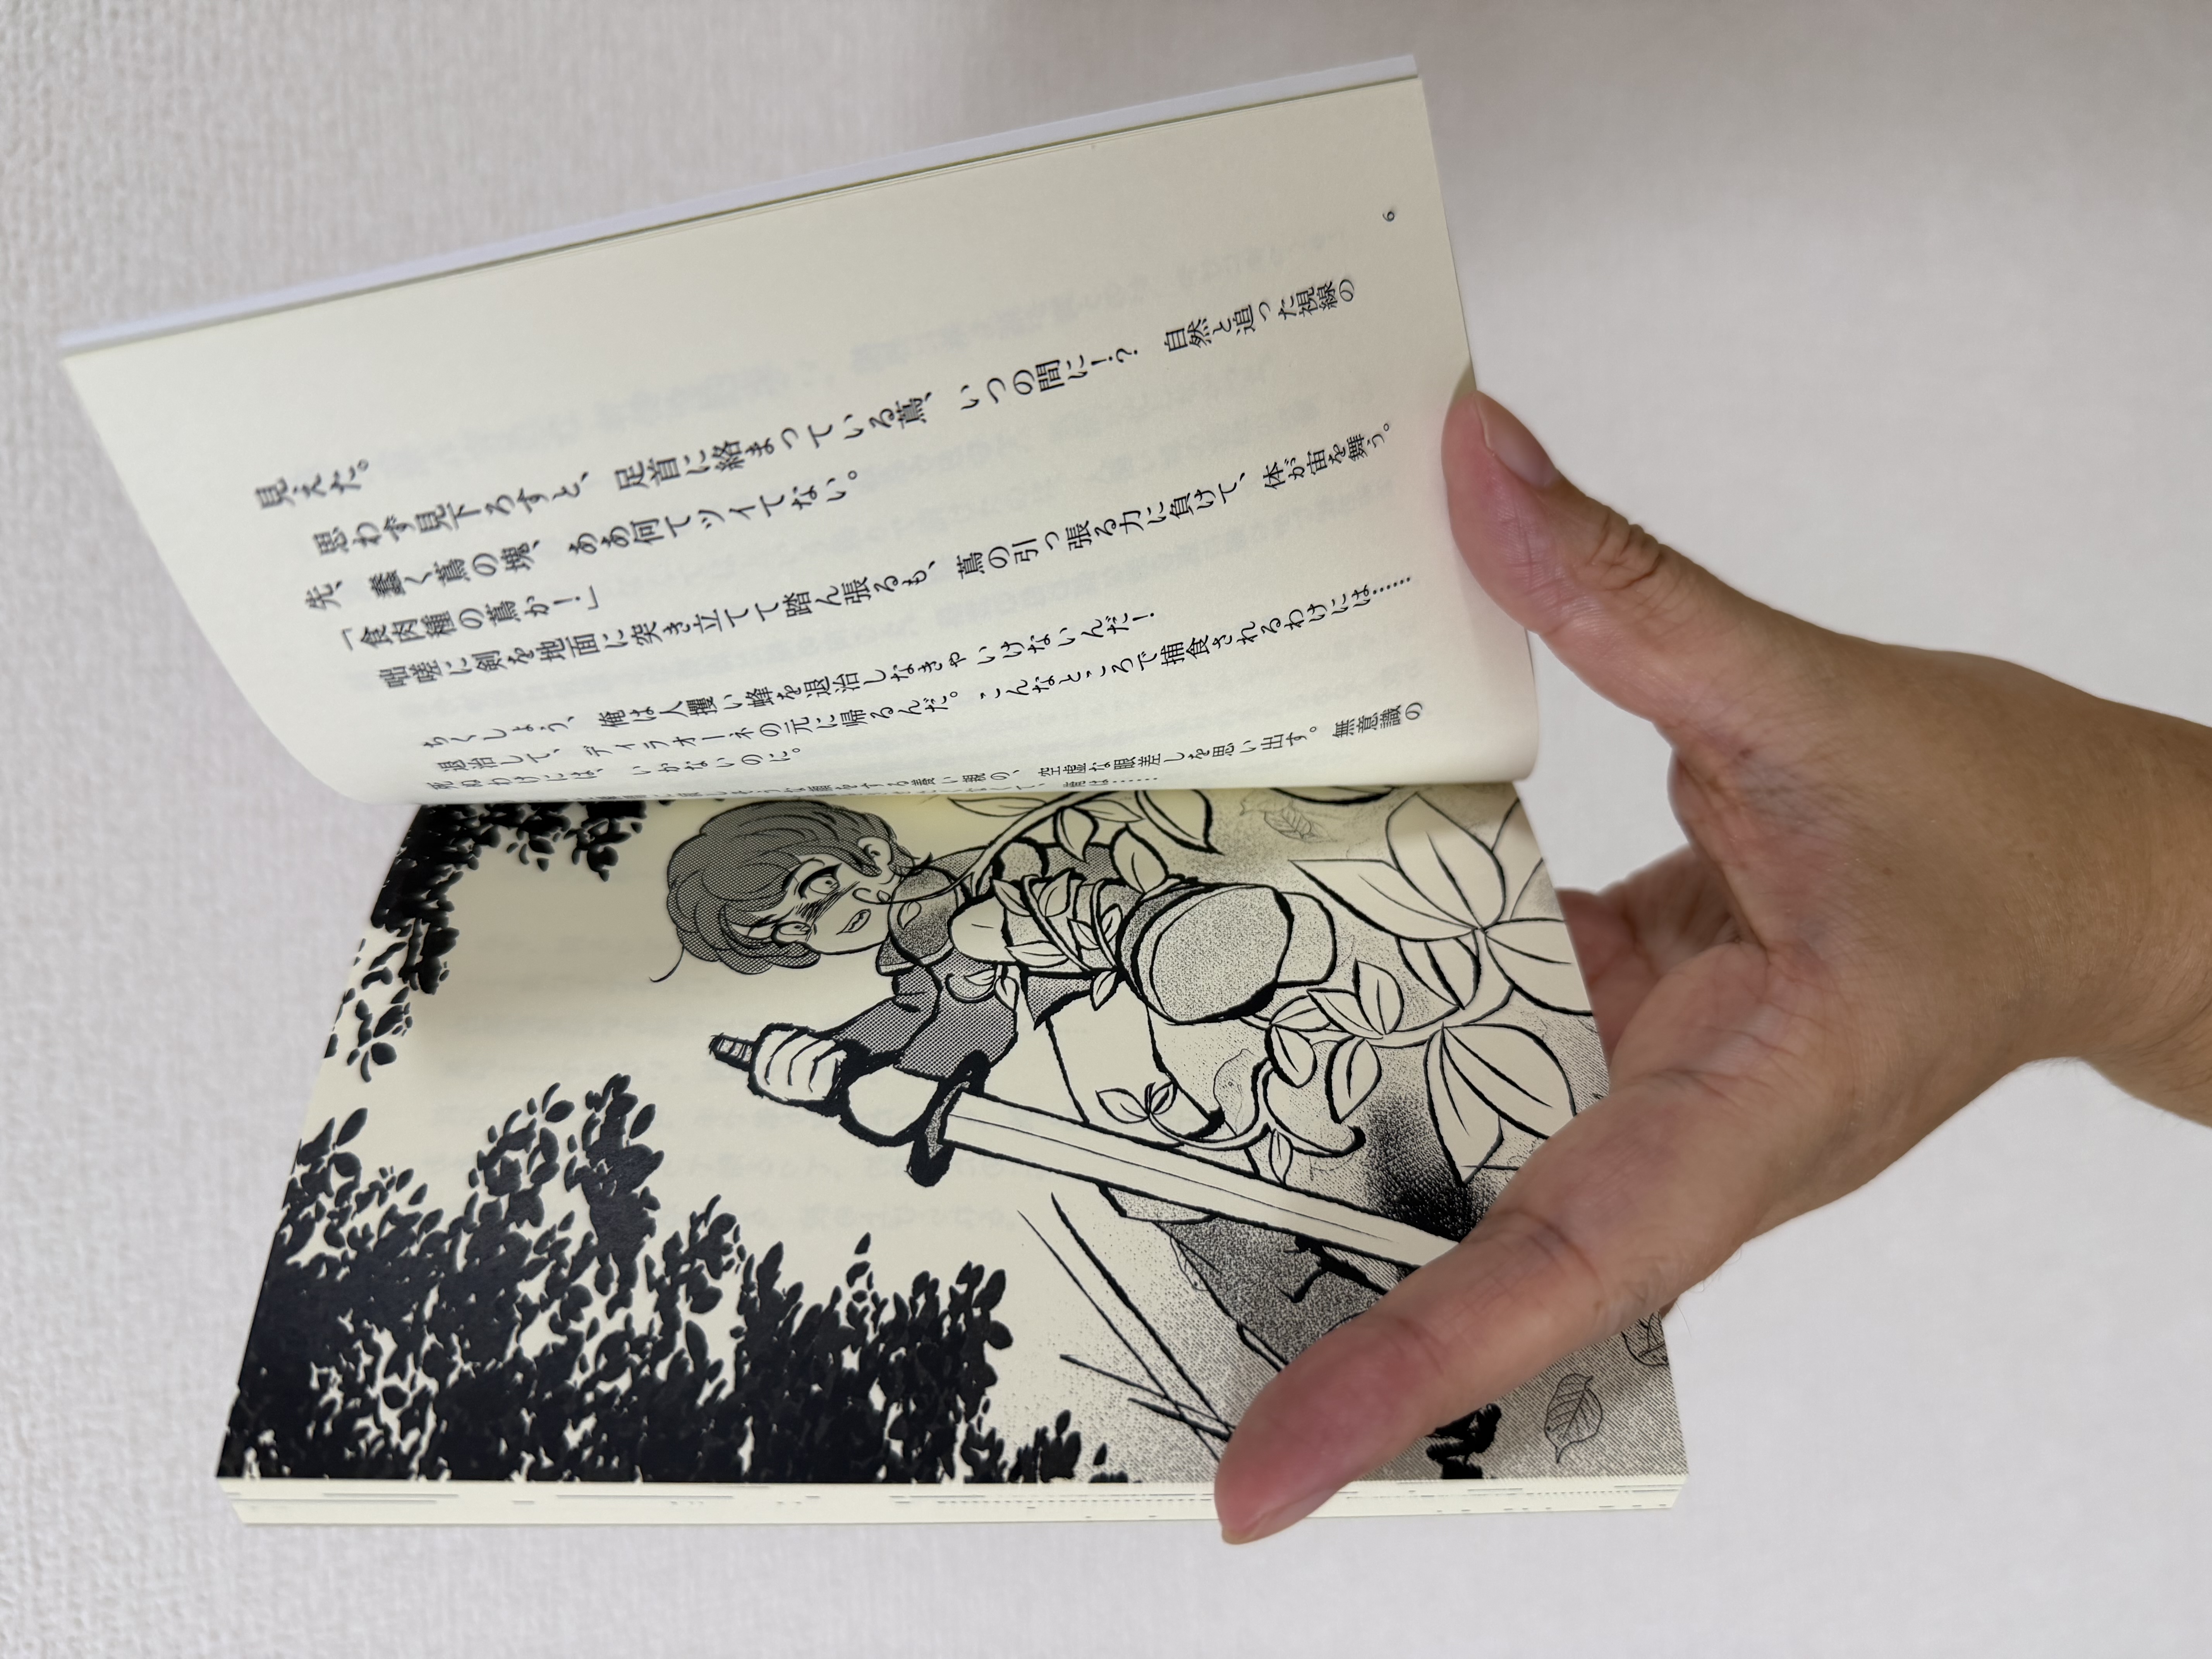 見えた。
思わず見下ろすと、足首に絡まっている蔦、いつの間に！？　自然と追った視線の
先、蠢く蔦の塊、ああ何てツイてない。
「食肉種の蔦か！」
咄嗟に剣を地面に突き立てて踏ん張るも、蔦の引っ張る力に負けて、体が宙を舞う。
ちくしょう、俺は人攫い蜂を退治しなきゃいけないんだ！
退治して、ディラオーネの元に帰るんだ。こんなところで捕食されるわけには……
死ぬわけには、いかないのに。
をする養い親の、空虚な眼差しを思い出す。無意識の
6